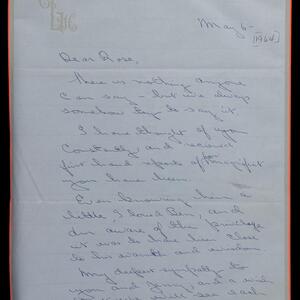 May 6 -
[1964]
Dear Rose,
There is nothing anyone
can say - but we always
somehow try to say it
I have thought of you
constantly, and received
first hand reports of how magnificent
you have been.
Even knowing him a
little, I loved Ben, and
am aware of the privilege
it was to have been close
to his warmth and wisdom
My deepest sympathy to
you and Jerry, and a wish